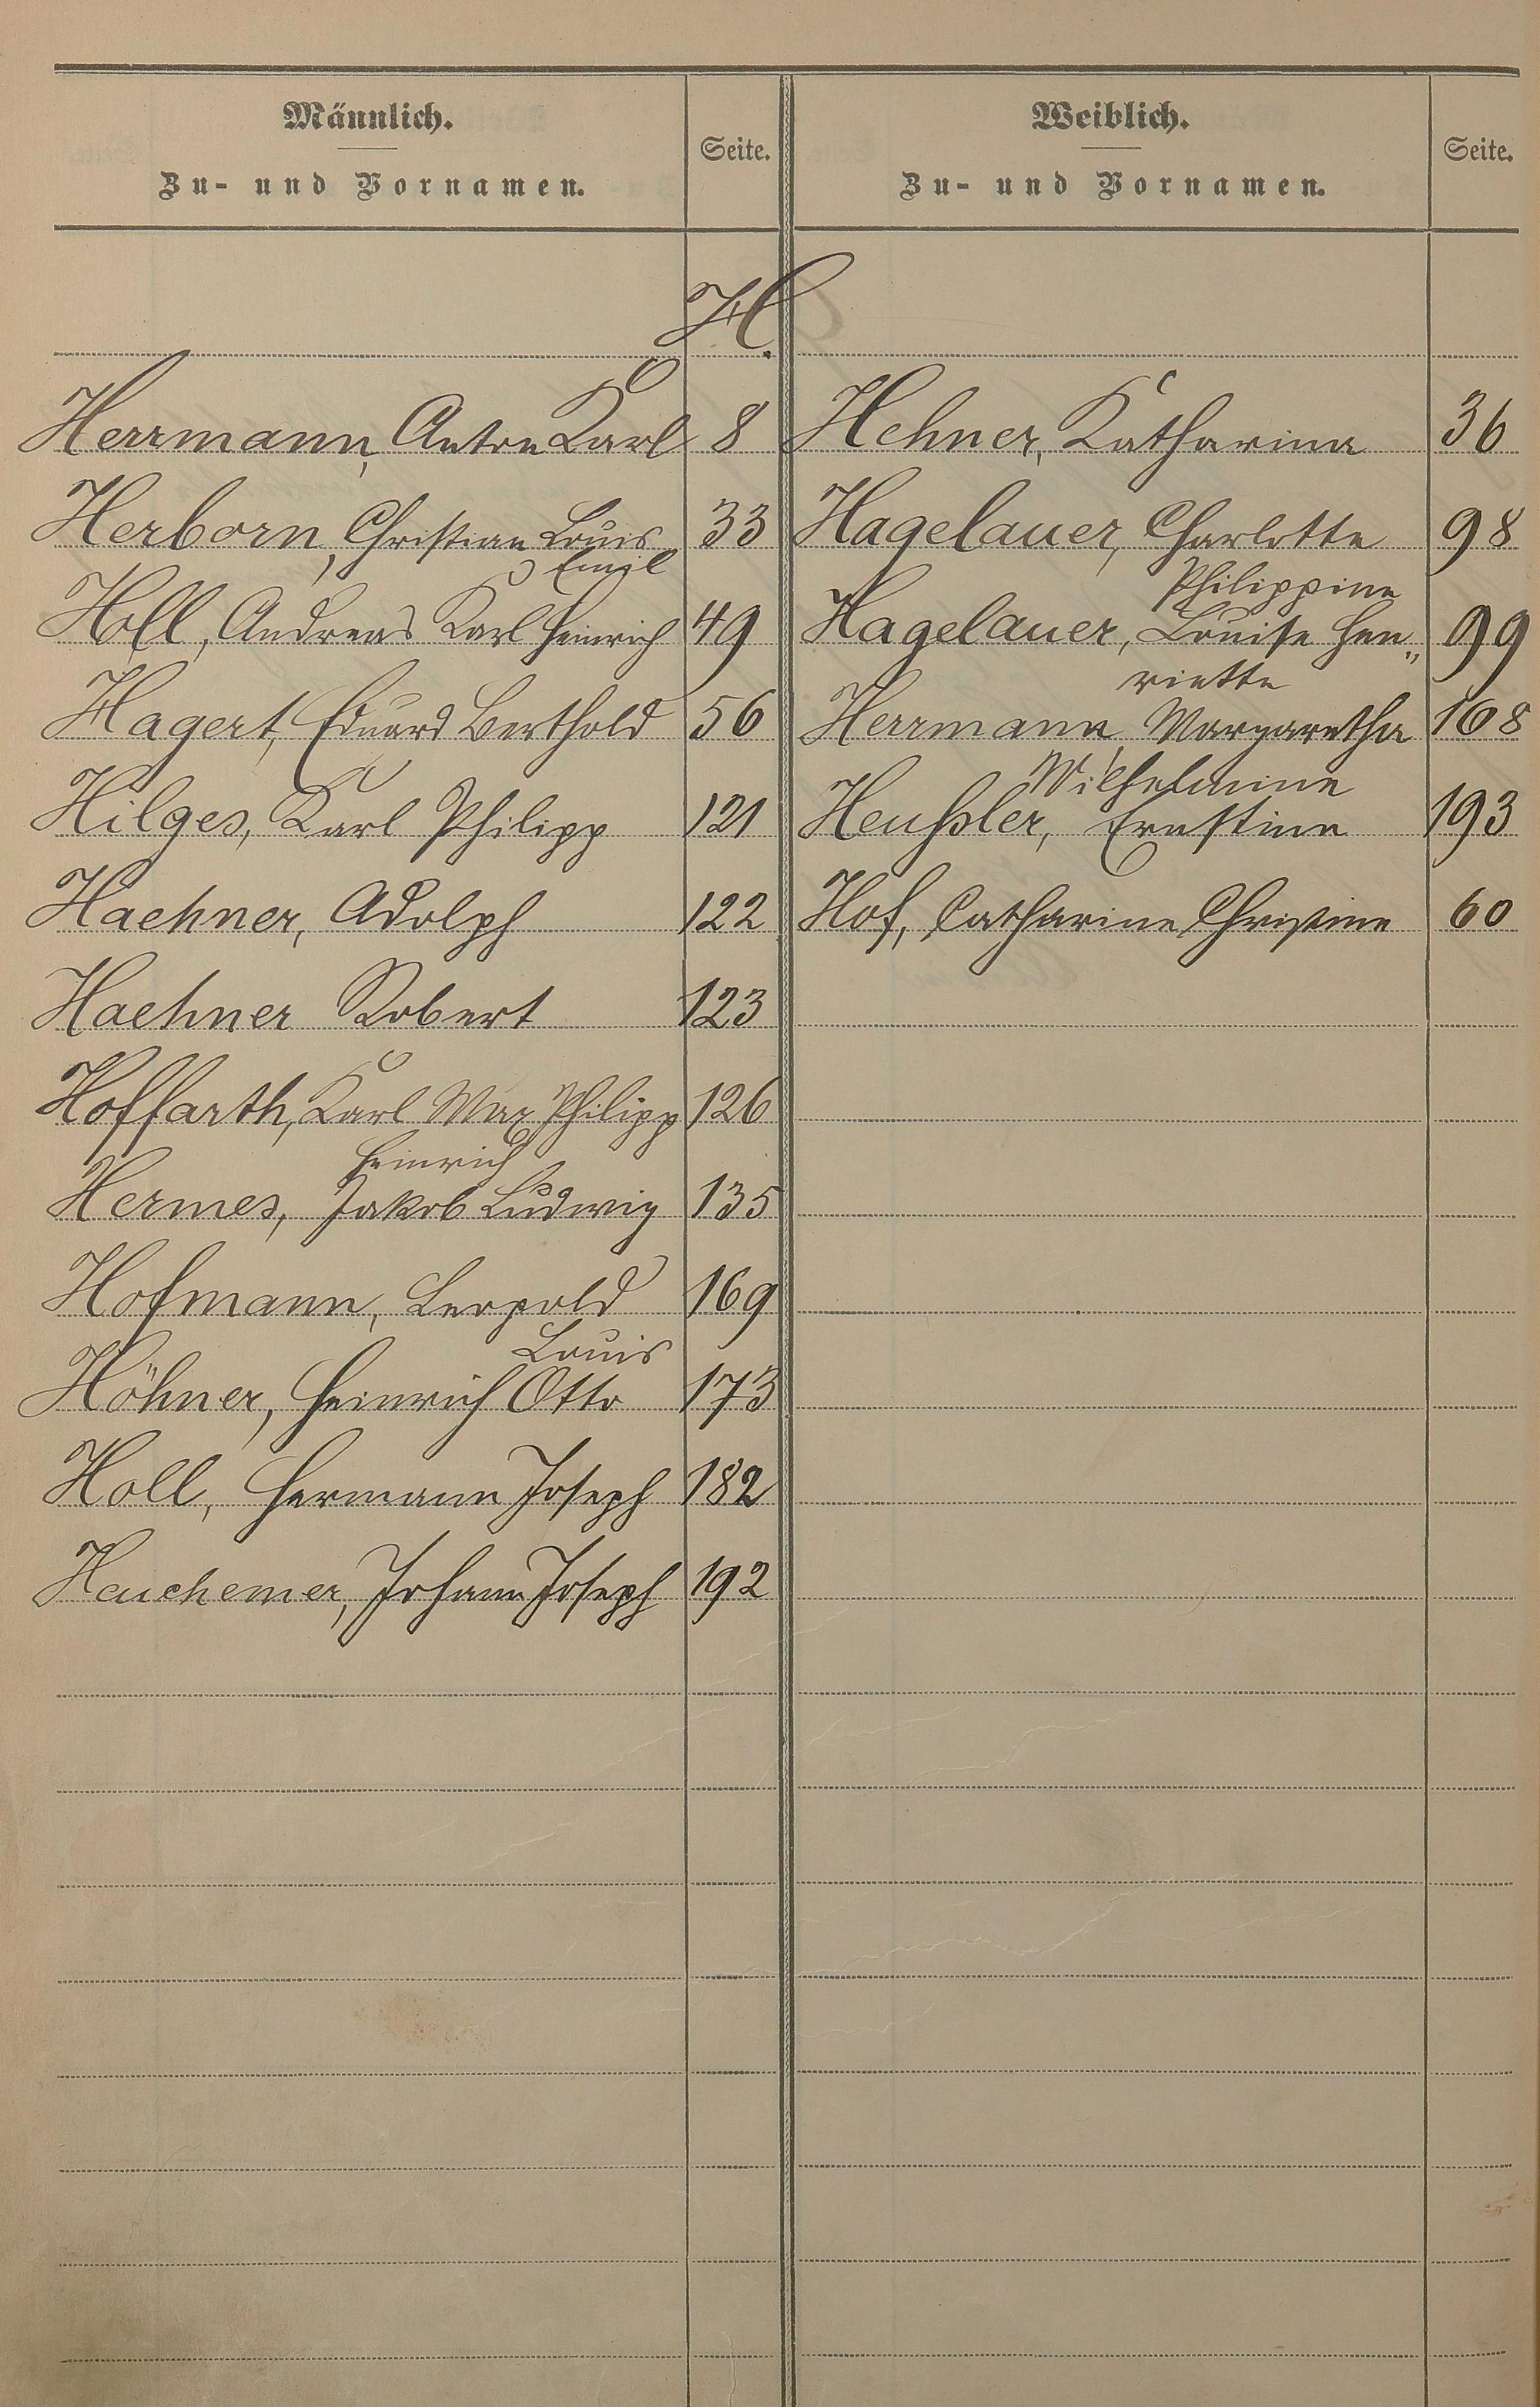 Männlich.
Zu- und Vornamen.
Seite.
Weiblich.
Zu- und Vornamen.
Seite.
H.
Herrmann, Anton Karl 8
Herborn, Christian Louis 33
Emil
Holl, Andreas Karl Heinrich 49
Hagert, Eduard Berthold 56
Hilges, Karl Philipp 121
Haehner, Adolph 122
Haehner Robert 123
Hoffarth, Karl Max Philipp 126
Heinrich
Hermes, Jakob Ludwig 135
Hofmann, Leopold 169
Louis
Höhner, Heinrich Otto 173
Holl, Hermann Joseph 182
Heuchemer, Johann Joseph 192
Hehner, Katharina 36
Hagelauer, Charlotte 98
Philippine
Hagelauer, Louise Hen„ 99
riette
Herrmann, Margaretha 168
Wilhelmine
Heußler, Ernstine 193
Hof, Catharine Christine 60